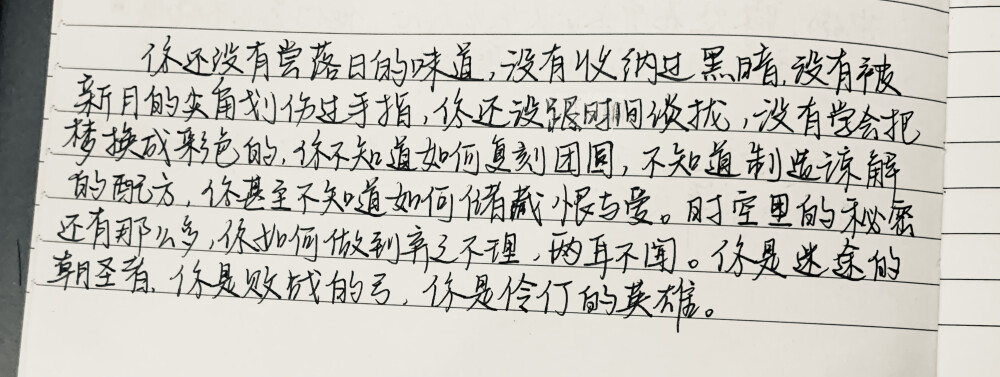 你还没有尝落日的味道，没有收纳过黑暗，没有被
新月的尖角划伤过手指，你还没跟时间谈拢，没有学会把
梦换成彩色的，你不知道如何复刻团圆，不知道制造谅解
的配方，你甚至不知道如何储藏恨与爱。时空里的秘密
还有那么多，你如何做到弃之不理，两耳不闻。你是迷途的
朝圣者，你是败战的弓，你是伶仃的英雄。